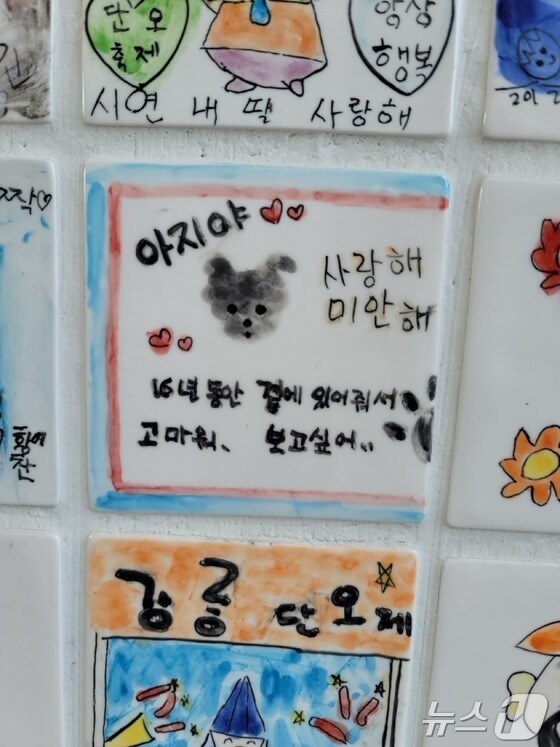 단오
축제
항상
행복
시연 내 딸 사랑해
아지야
사랑해
미안해
16년동안 곁에 있어줘서
고마워.. 보고싶어..
강릉 단오제
뉴스1